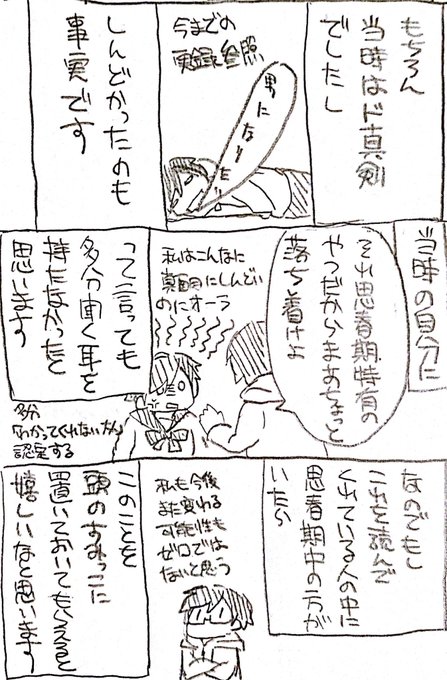 もちろん
当時はド真剣
でしたし
今までの
実録参照
男になりてぇ
しんどかったのも
事実です
当時の自分に
それ思春期特有の
やつだからまあちょっと
落ち着けよ
私はこんなに
真面目にしんどい
のにオーラ
って言っても
多分聞く耳を
持たなかったと
思います
多分
「わかってくれない大人」
認定する
なのでもし
これを読んで
くれている人の中に
思春期中の方が
いたら
私も今後
また変わる
可能性も
ゼロでは
ないと思う
このことを
頭のすみっこに
置いておいてもらえると
嬉しいなと思います